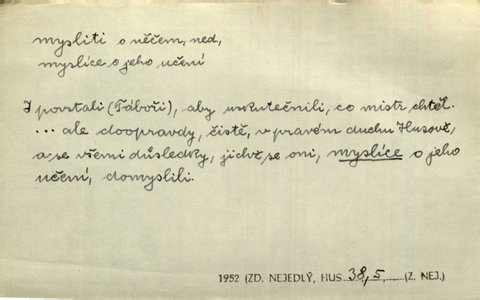 mysliti o něčem, ned,
myslíce o jeho učení
I povstali (Táboři), aby uskutečnili, co mistr chtěl.
... ale doopravdy, čistě, v pravém duchu Husově,
a se všemi důsledky, jichž se oni, myslíce o jeho
učení, domyslili.
1952 (ZD. NEJEDLÝ, HUS 38, 5, (Z. NEJ.)